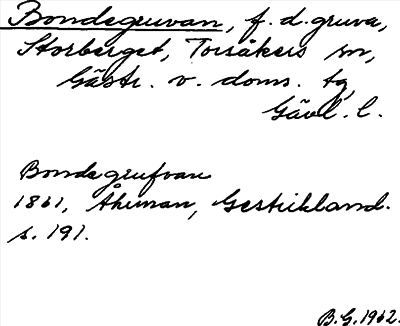 Bondegruvan, f.d. gruva,
Storberget, Torsåkers sn,
Gästr. v. doms. tg,
Gävl. l.
Bondegrufvan
1861, Åkerman, Gestrikland.
s. 191.
B.G. 1962.